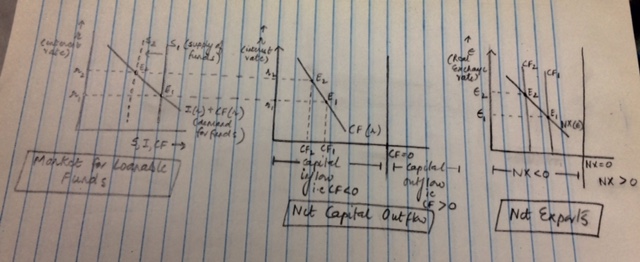 r
(interest
rate)
S2
S1 (supply of
funds)
E2
E1
r2
r1
I(r) + CF(r)
(demand
for funds)
S, I, CF →
Market for Loanable
Funds
r
(interest
rate)
r2
r1
E2
E1
CF(r)
CF2 CF1
CF=0
capital
inflow
ie CF<0
capital
outflow
ie
CF>0
Net Capital Outflow
ε
(Real
Exchange
rate)
CF2
CF1
ε2
ε1
E2
E1
NX(ε)
NX<0
NX=0
NX>0
Net Exports